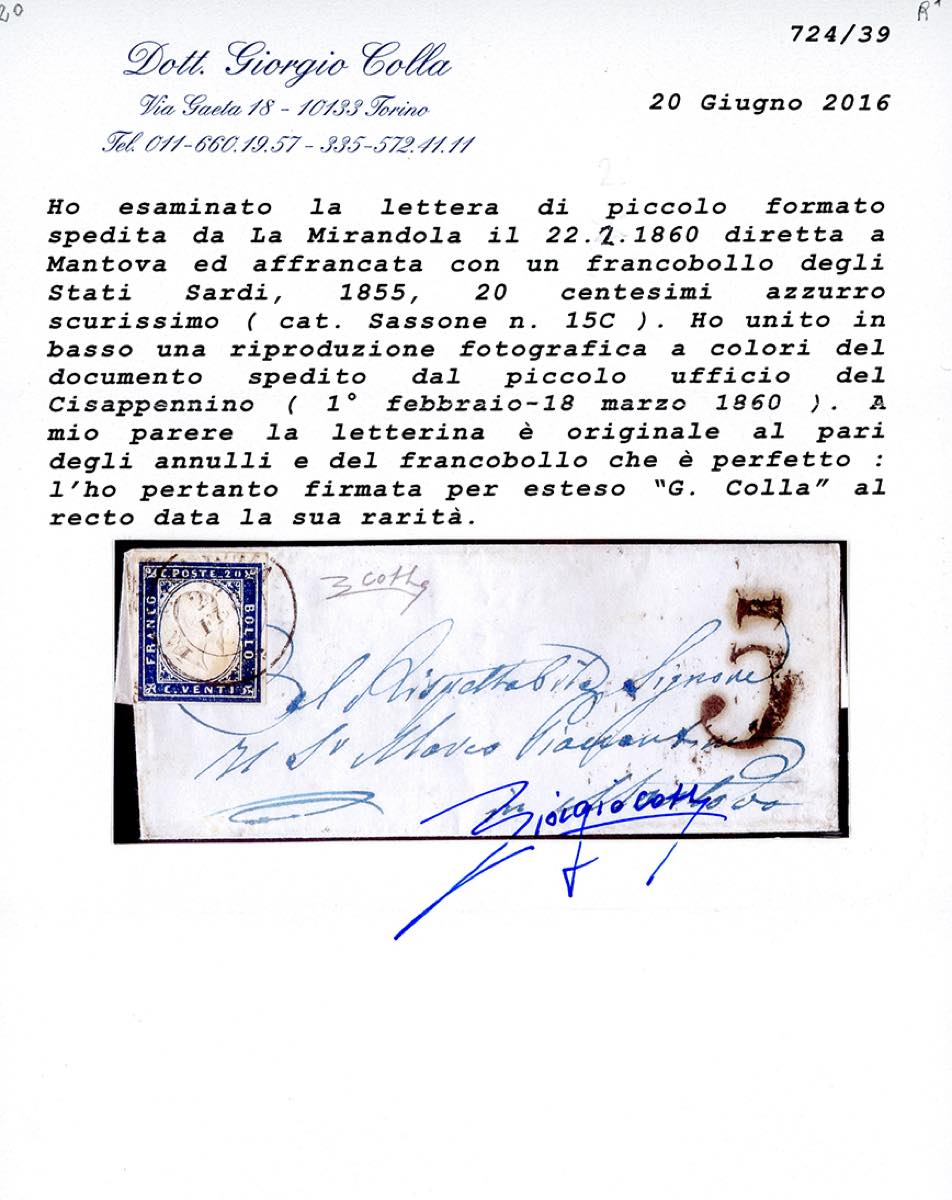 20
R¹
724/39
Dott. Giorgio Colla
Via Gaeta 18 - 10133 Torino
Tel. 011-660.19.57 - 335-572.41.11
20 Giugno 2016
2
Ho esaminato la lettera di piccolo formato
spedita da La Mirandola il 22.2.1860 diretta a
Mantova ed affrancata con un francobollo degli
Stati Sardi, 1855, 20 centesimi azzurro
scurissimo ( cat. Sassone n. 15C ). Ho unito in
basso una riproduzione fotografica a colori del
documento spedito dal piccolo ufficio del
Cisappennino ( 1° febbraio-18 marzo 1860 ). A
mio parere la letterina è originale al pari
degli annulli e del francobollo che è perfetto :
l'ho pertanto firmata per esteso “G. Colla” al
recto data la sua rarità.
C. POSTE. 20
FRANCO
BOLLO
C. VENTI
G Colla
5
Al Rispettabile Signore
Il Sr Marco
in Mantova
Giorgio Colla